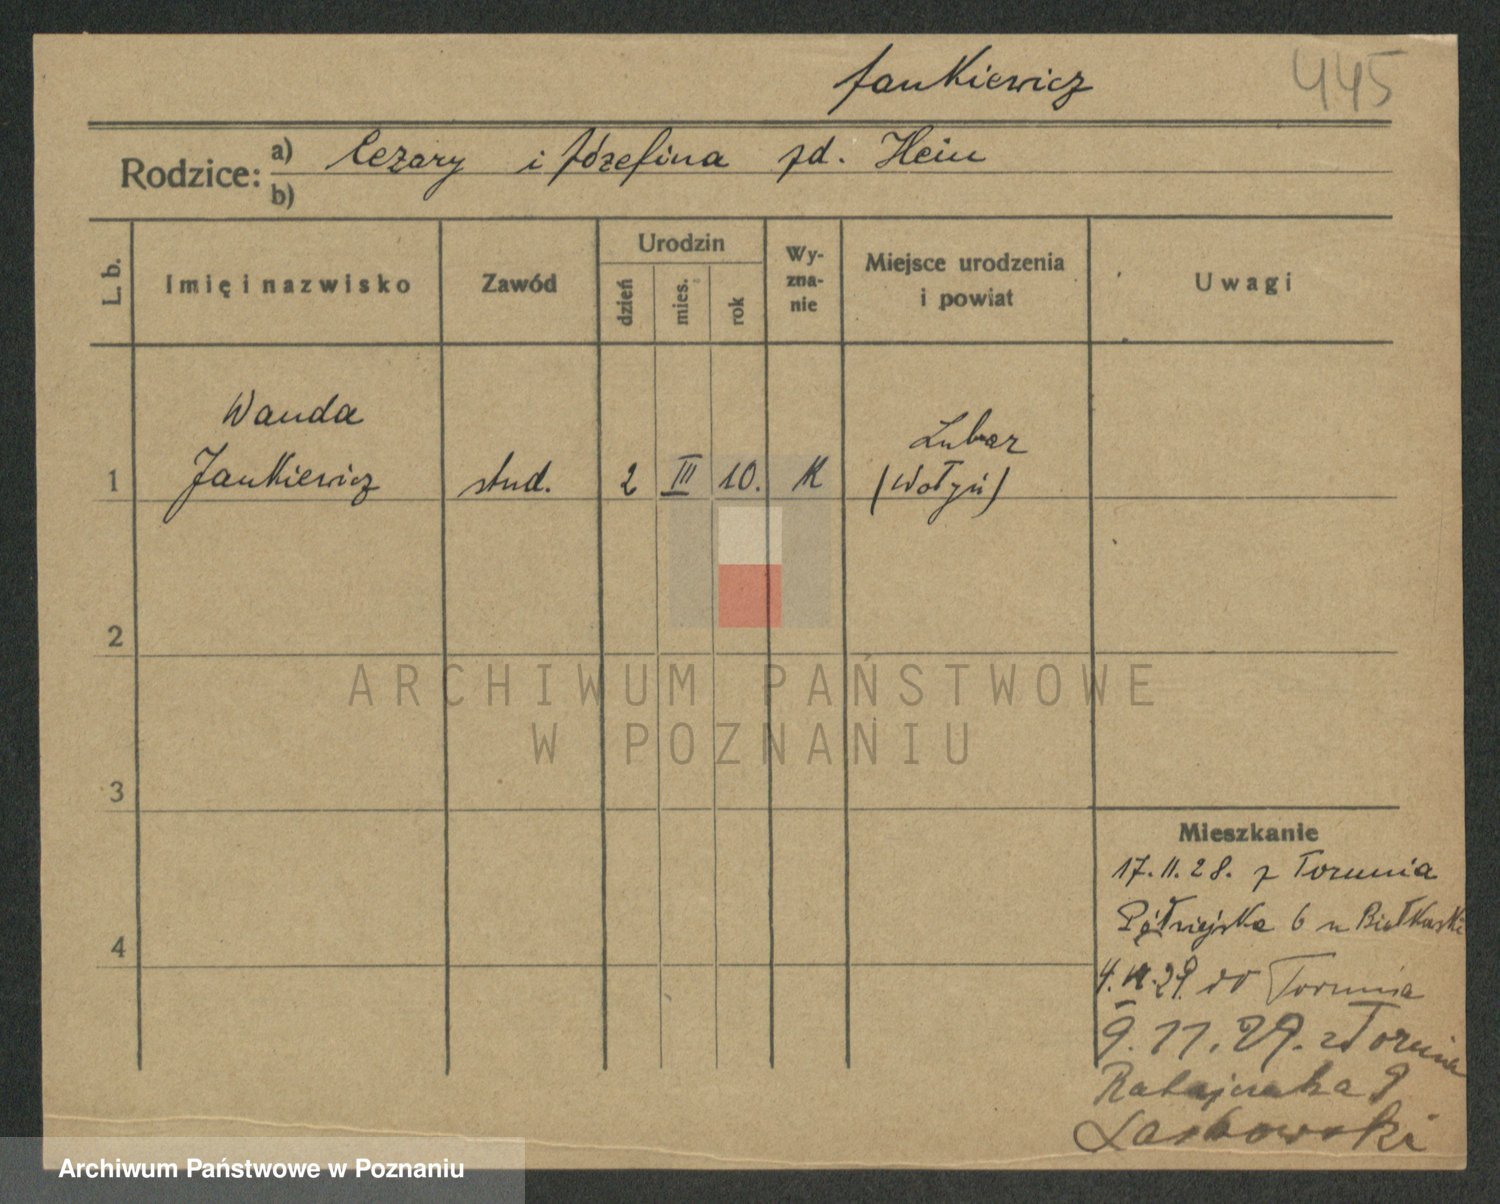 Jankiewicz
445
Rodzice:
a) Cezary i Józefina zd. Hein
b)
L. b.
Imię i nazwisko
Zawód
Urodzin
dzień
mies.
rok
Wy-
zna-
nie
Miejsce urodzenia
i powiat
Uwagi
Wanda
Lubar
1 Jankiewicz stud. 2 III 10. K (Wołyń)
2
ARCHIWUM PAŃSTWOWE
W POZNANIU
3
4
Mieszkanie
17.11.28. z Torunia
Półwiejska 6 u Białkowski
4. 29. do Torunia
9.11.29. z Torunia
Ratajczaka 9
Laskowski
Archiwum Państwowe w Poznaniu